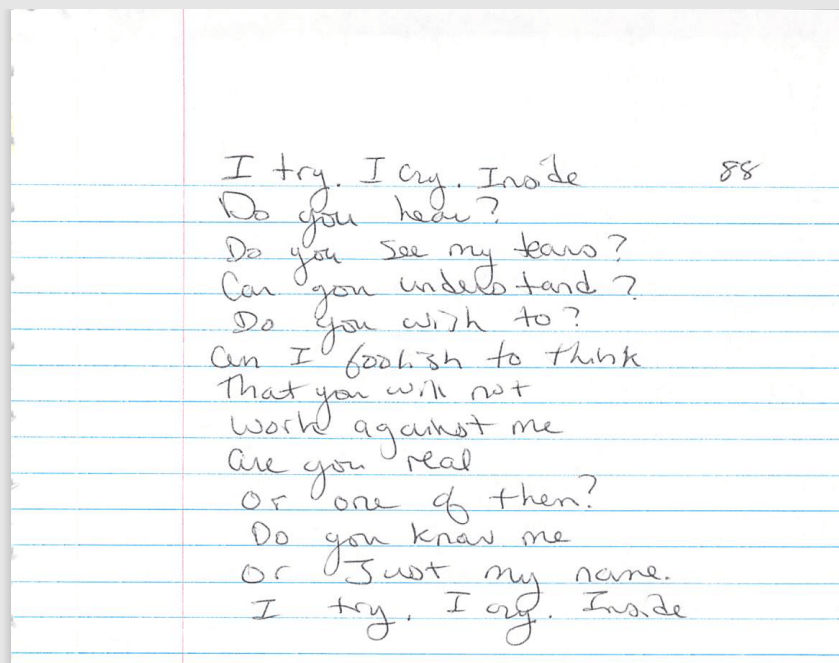 I try. I cry. Inside 88
Do you hear?
Do you see my tears?
Can you understand?
Do you wish to?
am I foolish to think
That you will not
work against me
are you real
or one of them?
Do you know me
or Just my name.
I try. I cry. Inside